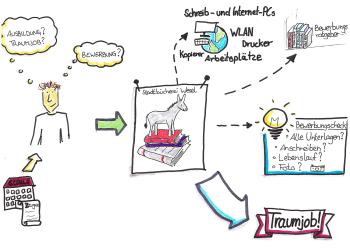 AUSBILDUNG?
TRAUMJOB?
BEWERBUNG?
SCHULE
Stadtbücherei Wesel
Schreib- und Internet-PCs
WLAN
Drucker
Kopierer
Arbeitsplätze
Bewerbungs
ratgeber
Bewerbungscheck
Alle Unterlagen?
Anschreiben?
Lebenslauf?
Foto?
Traumjob!